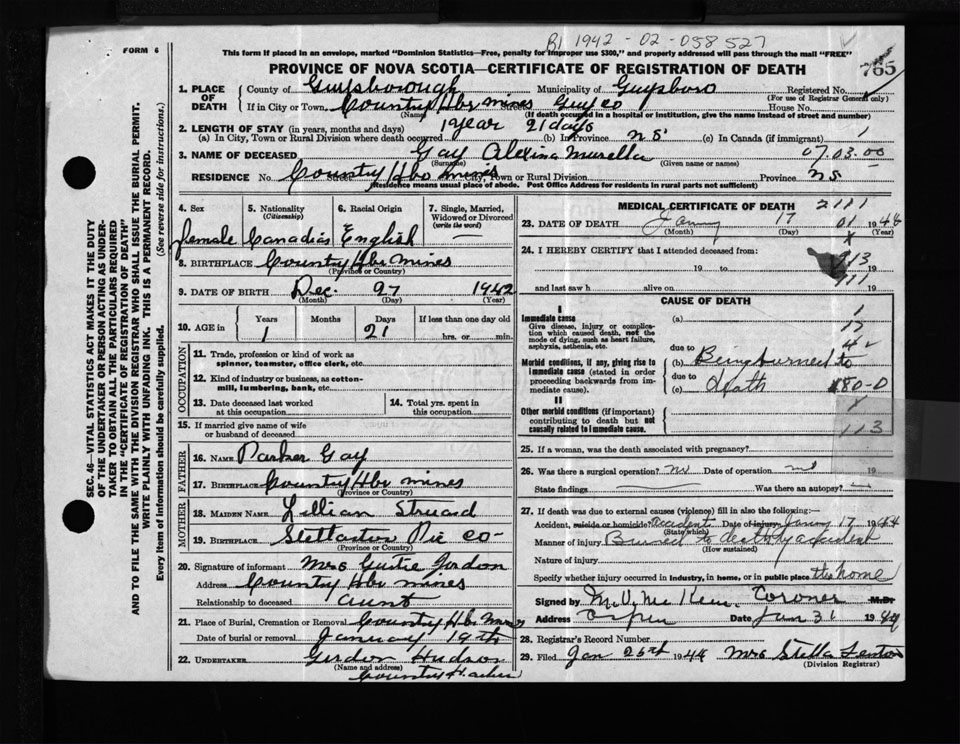 B1 1942-02-058527
FORM 6
This form if placed in an envelope, marked "Dominion Statistics—Free, penalty for improper use $300," and properly addressed will pass through the mail "FREE"
PROVINCE OF NOVA SCOTIA—CERTIFICATE OF REGISTRATION OF DEATH
765
1. PLACE OF DEATH
County of Guysborough Municipality of Guysboro Registered No.
(For use of Registrar General only)
If in City or Town, Country Hbr mines Street Guy co House No.
(Name) (If death occurred in a hospital or institution, give the name instead of street and number)
2. LENGTH OF STAY (in years, months and days) 1 year 21 days
(a) In City, Town or Rural Division where death occurred (b) In Province N S (c) In Canada (if immigrant) 1
3. NAME OF DECEASED Gay Alexina Murella 07.03.00
(Surname) (Given name or names)
RESIDENCE No. Country Hbr mines Street City, Town or Rural Division Province N S
(Residence means usual place of abode. Post Office Address for residents in rural parts not sufficient)
4. Sex
female
5. Nationality (Citizenship)
Canadian
6. Racial Origin
English
7. Single, Married, Widowed or Divorced (write the word)
—
8. BIRTHPLACE Country Hbr Mines
(Province or Country)
9. DATE OF BIRTH Dec. 27 1942
(Month) (Day) (Year)
10. AGE in Years Months Days If less than one day old
1 21 hrs. or min.
OCCUPATION
11. Trade, profession or kind of work as spinner, teamster, office clerk, etc.
12. Kind of industry or business, as cotton-mill, lumbering, bank, etc.
13. Date deceased last worked at this occupation
14. Total yrs. spent in this occupation
15. If married give name of wife or husband of deceased
FATHER
16. NAME Parker Gay
17. BIRTHPLACE Country Hbr mines
(Province or Country)
MOTHER
18. MAIDEN NAME Lillian
19. BIRTHPLACE Stellarton Pic co-
(Province or Country)
20. Signature of informant Mrs Gertie Gordon
Address Country Hbr mines
Relationship to deceased aunt
21. Place of Burial, Cremation or Removal Country Hbr Mines
Date of burial or removal January 19th
22. UNDERTAKER Gordon Hudson
(Name and address)
Country Harbor
MEDICAL CERTIFICATE OF DEATH 2111
23. DATE OF DEATH Janry 17 01 1944
(Month) (Day) (Year)
24. I HEREBY CERTIFY that I attended deceased from:
19 to 19
and last saw h alive on 19
CAUSE OF DEATH
I
Immediate cause
Give disease, injury or complication which caused death, not the mode of dying, such as heart failure, asphyxia, asthenia, etc.
(a)
due to
Morbid conditions, if any, giving rise to immediate cause (stated in order proceeding backwards from immediate cause).
(b) Being burned to
due to
(c) death 180-0
II
Other morbid conditions (if important) contributing to death but not causally related to immediate cause.
113
25. If a woman, was the death associated with pregnancy?
26. Was there a surgical operation? no Date of operation 19
State findings Was there an autopsy?
27. If death was due to external causes (violence) fill in also the following:—
Accident, suicide or homicide? accident Date of injury Janry 17 1944
(State which)
Manner of injury Burned to death by accident
(How sustained)
Nature of injury
Specify whether injury occurred in industry, in home, or in public place the home
Signed by Coroner M.D.
Address Date Jan 31 1944
28. Registrar's Record Number
29. Filed Jan 25th 1944 Mrs Stella Fenton
(Division Registrar)
SEC. 46—VITAL STATISTICS ACT MAKES IT THE DUTY
OF THE UNDERTAKER OR PERSON ACTING AS UNDER-
TAKER TO OBTAIN ALL THE PARTICULARS REQUIRED
IN THE "CERTIFICATE OF REGISTRATION OF DEATH"
AND TO FILE THE SAME WITH THE DIVISION REGISTRAR WHO SHALL ISSUE THE BURIAL PERMIT.
WRITE PLAINLY WITH UNFADING INK. THIS IS A PERMANENT RECORD.
Every item of information should be carefully supplied. (See reverse side for instructions.)